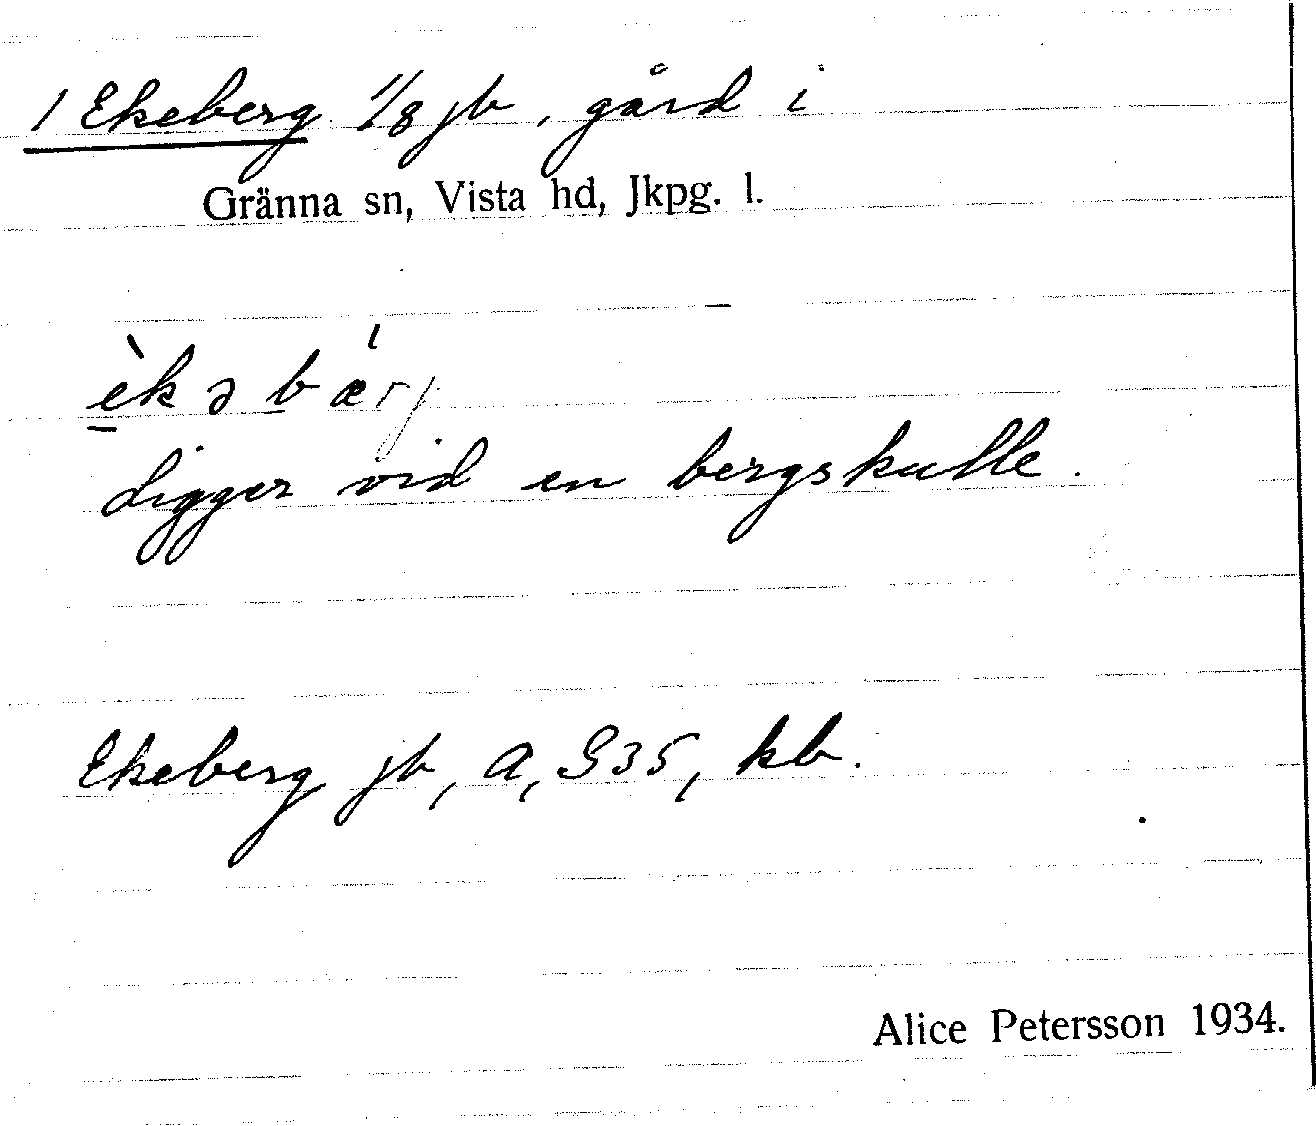 1 Ekeberg 1/8 jb, gård i
Gränna sn, Vista hd, Jkpg. l.
èkəbærj
Ligger vid en bergskulle.
Ekeberg jb, a, G35, kb.
Alice Petersson 1934.